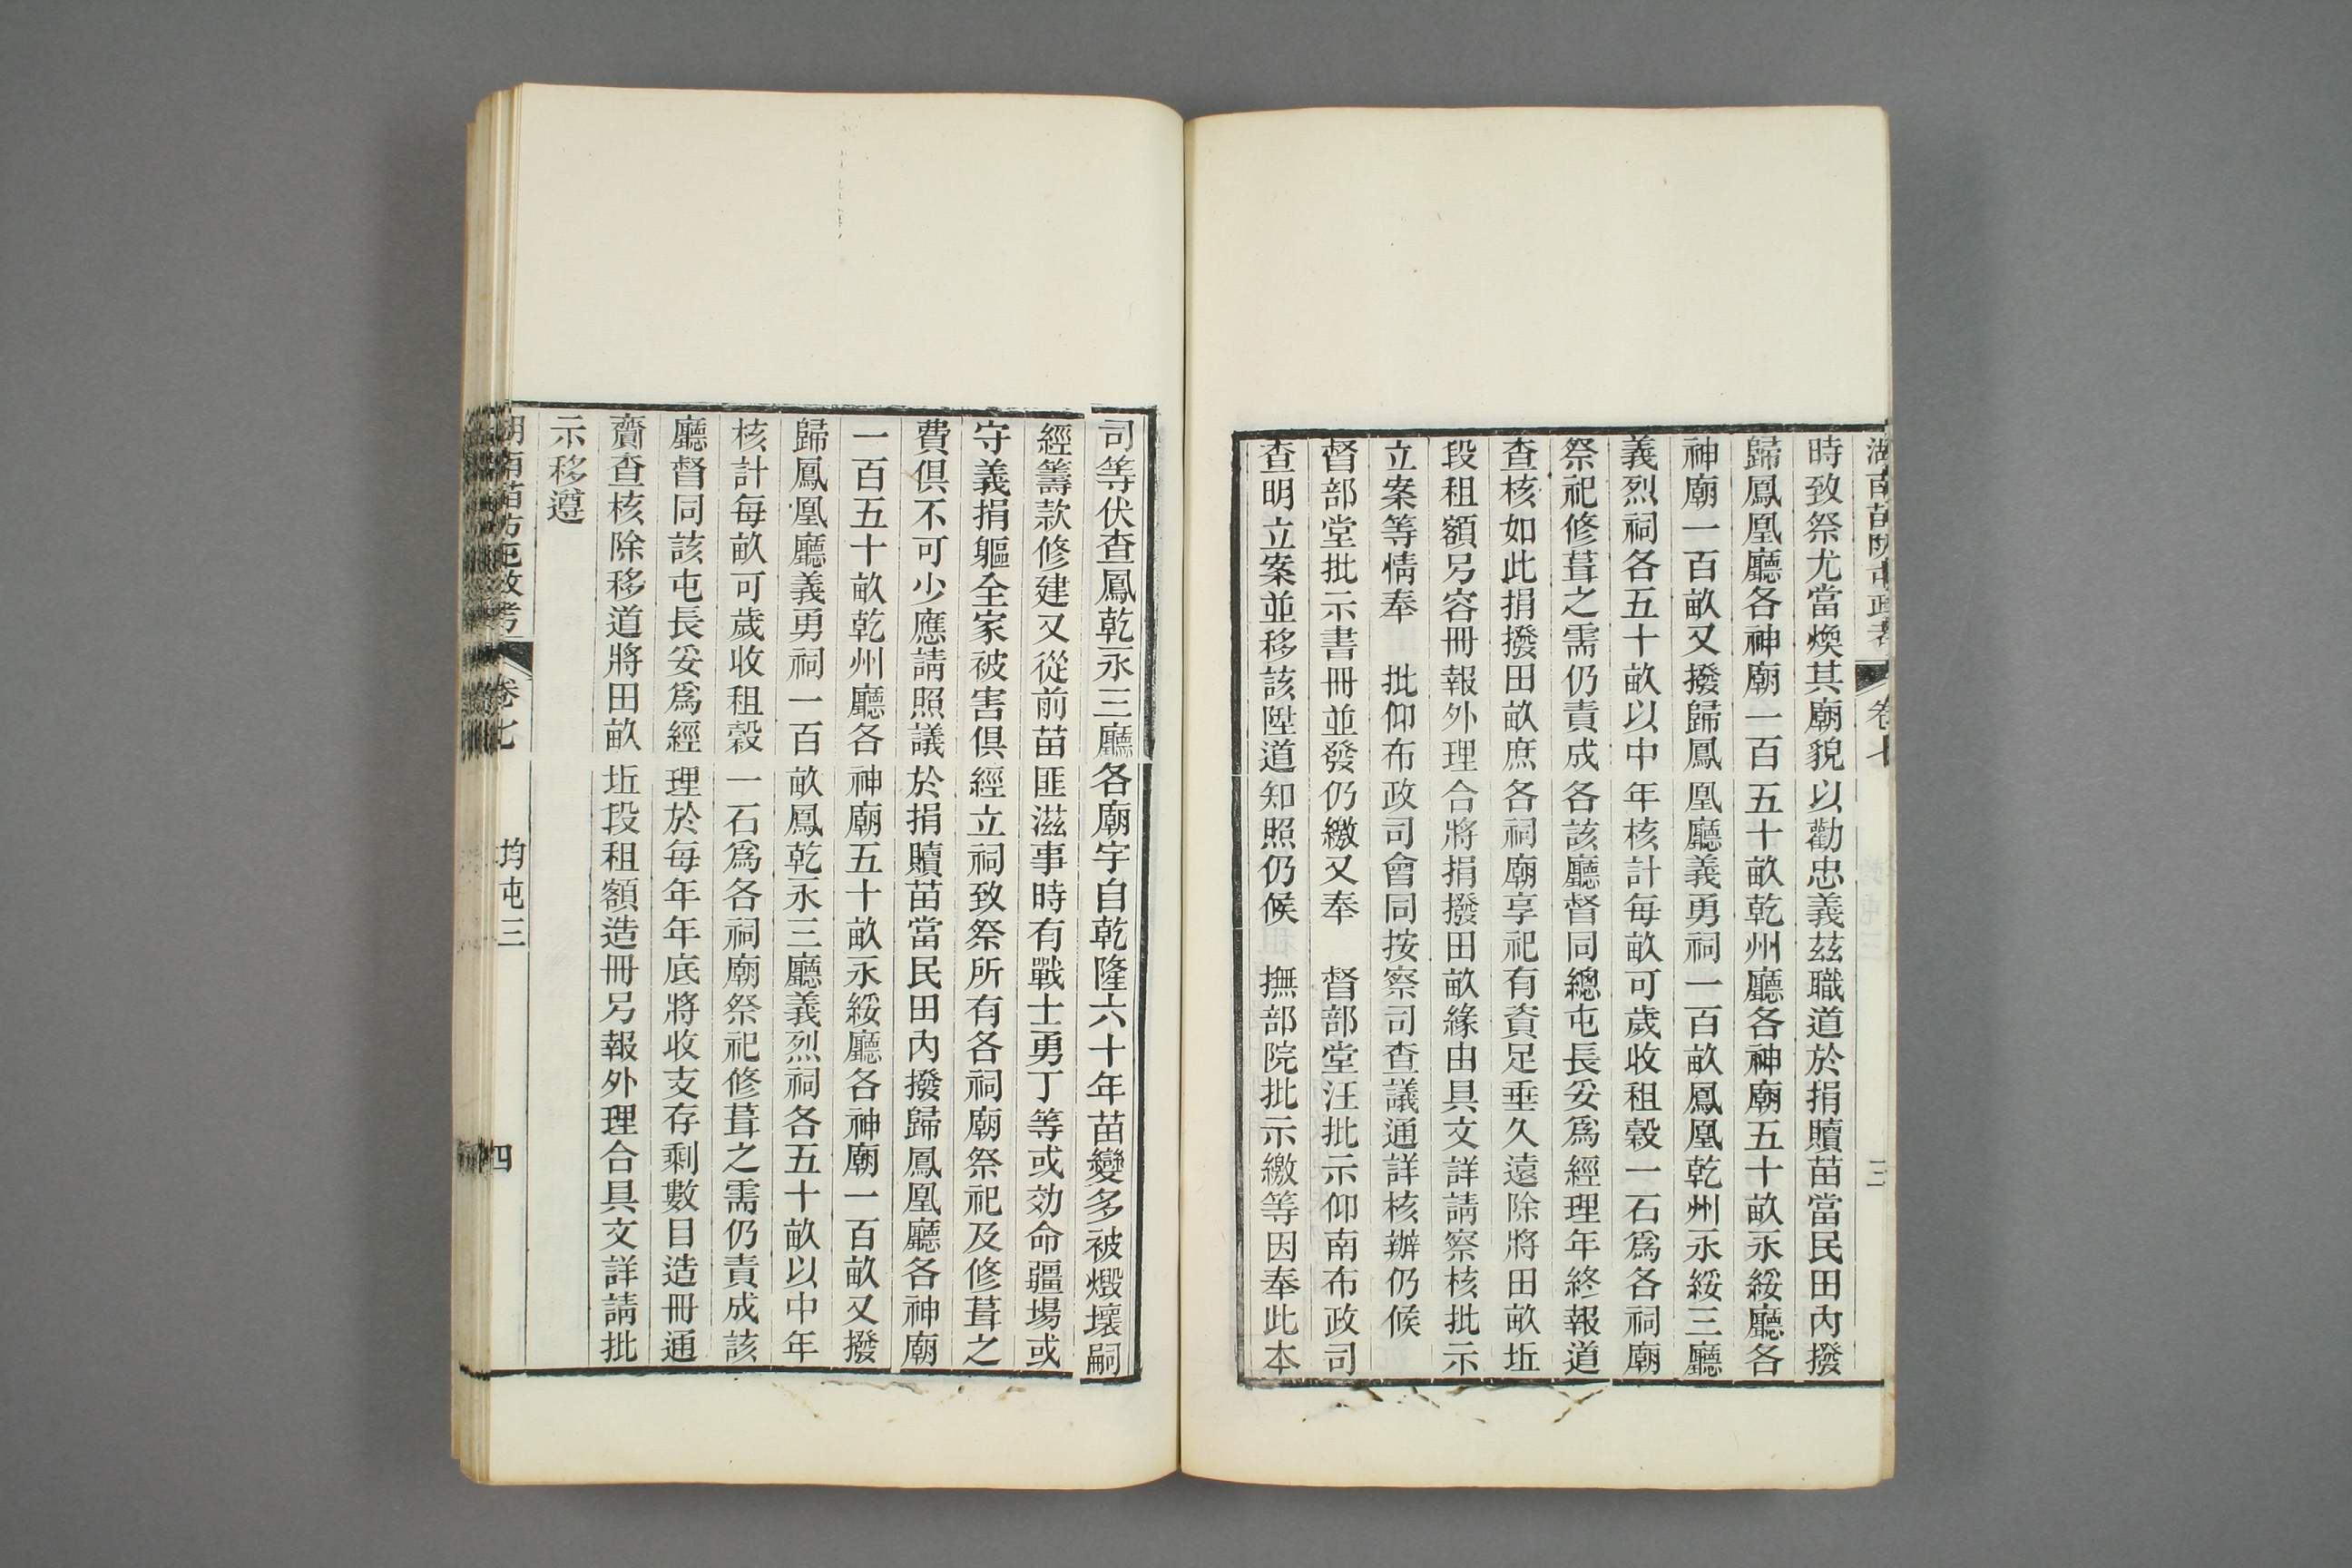 湖南苗防屯政考 卷七 三
時致祭尤當煥其廟貌以勸忠義茲職道於捐贖苗當民田內撥
歸鳳凰廳各神廟一百五十畝乾州廳各神廟五十畝永綏廳各
神廟一百畝又撥歸鳳凰廳義勇祠一百畝鳳凰乾州永綏三廳
義烈祠各五十畝以中年核計每畝可歲收租穀一石爲各祠廟
祭祀修葺之需仍責成各該廳督同總屯長妥爲經理年終報道
查核如此捐撥田畝庶各祠廟享祀有資足垂久遠除將田畝坵
段租額另容冊報外理合將捐撥田畝緣由具文詳請察核批示
立案等情奉 批仰布政司會同按察司查議通詳核辦仍候
督部堂批示書冊並發仍繳又奉 督部堂汪批示仰南布政司
查明立案並移該陞道知照仍候 撫部院批示繳等因奉此本
司等伏查鳳乾永三廳各廟宇自乾隆六十年苗變多被燬壞嗣
經籌款修建又從前苗匪滋事時有戰士勇丁等或効命疆場或
守義捐軀全家被害俱經立祠致祭所有各祠廟祭祀及修葺之
費俱不可少應請照議於捐贖苗當民田內撥歸鳳凰廳各神廟
一百五十畝乾州廳各神廟五十畝永綏廳各神廟一百畝又撥
歸鳳凰廳義勇祠一百畝鳳乾永三廳義烈祠各五十畝以中年
核計每畝可歲收租穀一石爲各祠廟祭祀修葺之需仍責成該
廳督同該屯長妥爲經理於每年年底將收支存剩數目造冊通
齎查核除移道將田畝坵段租額造冊另報外理合具文詳請批
示移遵
湖南苗防屯政考 卷七 均屯三 四